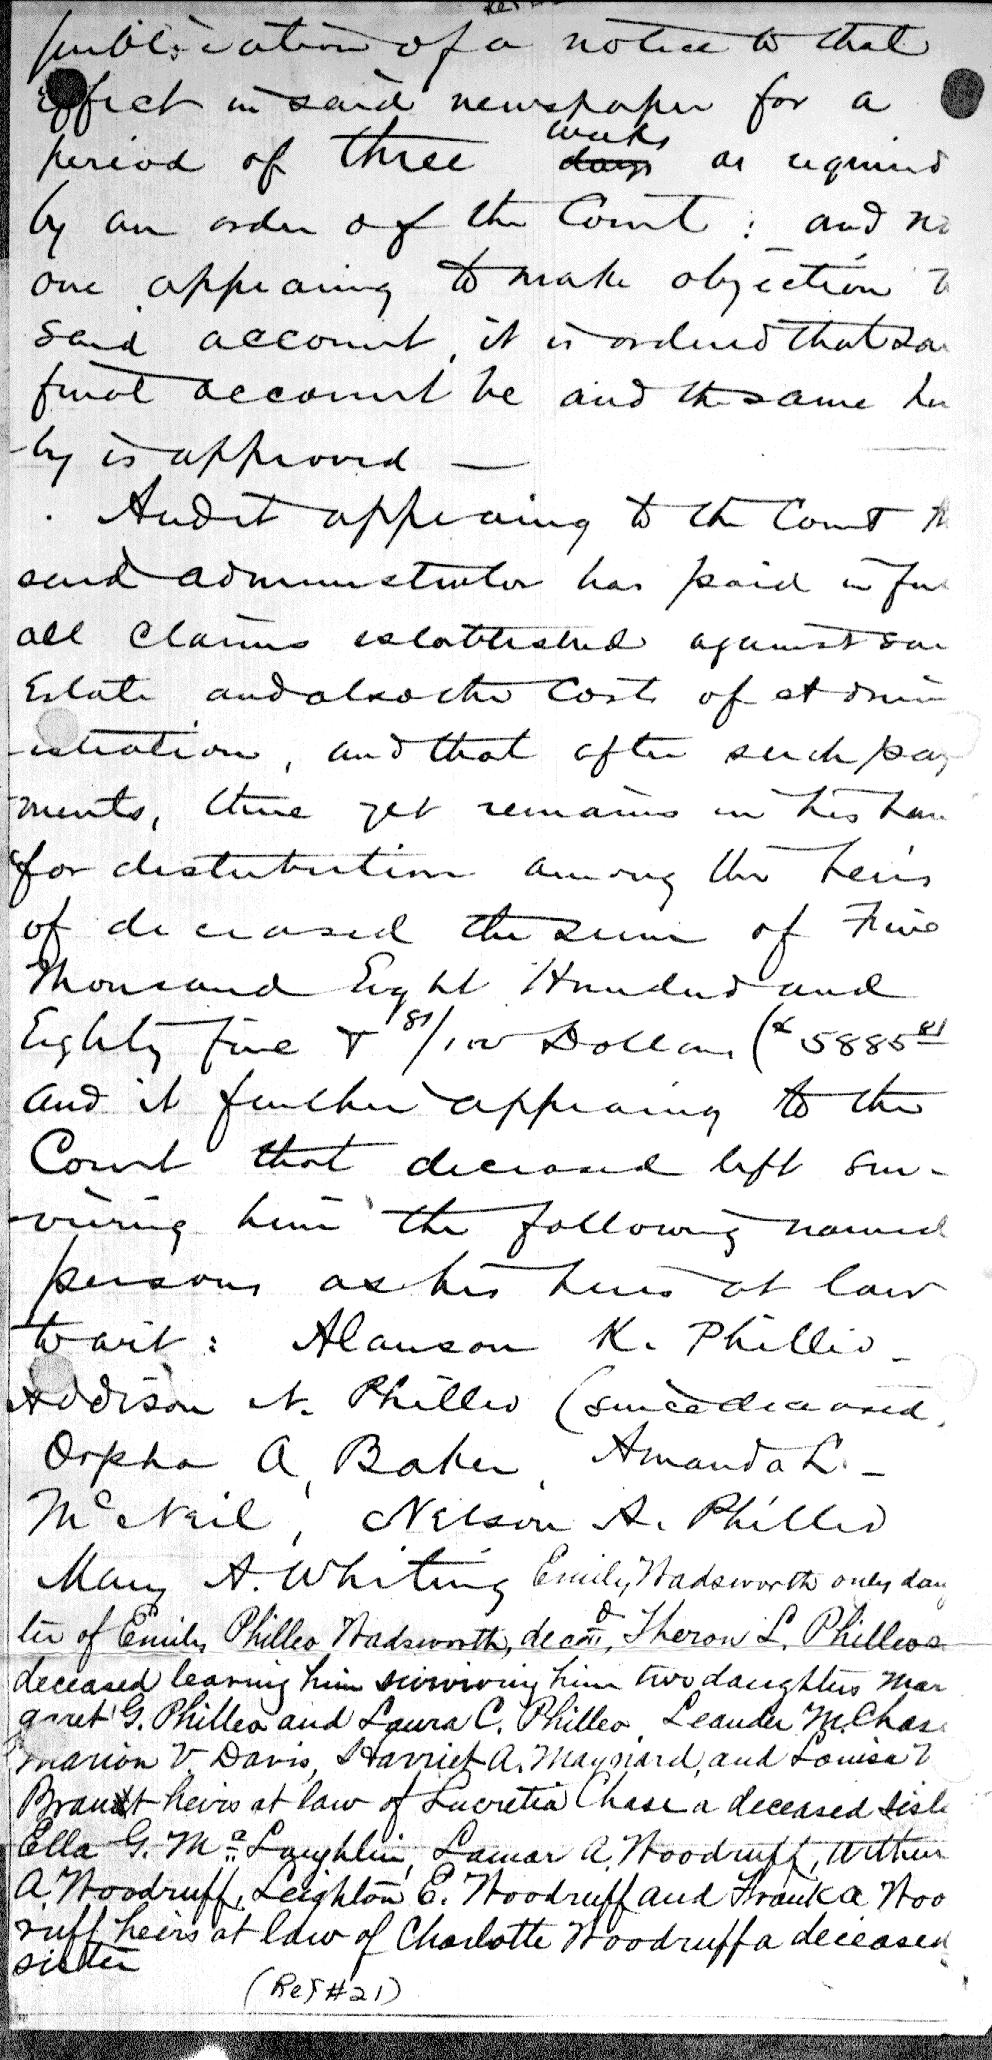 publication of a notice to that
effect in said newspaper for a
weeks
period of three days as required
by an order of the Court : and no
one appearing to make objection to
said account, it is ordered that sai
final account be and the same her
-by is approved —
And it appearing to the Court th
said administrator has paid in ful
all claims established against sai
Estate and also the Costs of admin
-istration, and that after such pay
ments, there yet remains in his han
for distribution among the heirs
of deceased the sum of Five
Thousand Eight Hundred and
Eighty five & 81/100 Dollars ($5885 81
and it further appearing to the
Court that deceased left sur-
-viving him the following named
persons as his heirs at law
to wit : Alanson K. Philleo -
Addison N. Philleo (since deceased,
Orpha A, Baker, Amanda L. -
McNeil, Nelson A. Philleo
Mary A. Whiting Emily Wadsworth only daug
ter of Emily Philleo Wadsworth, decd, Theron L. Philleo
deceased leaving him surviving him two daughters Mar
garet G. Philleo and Laura C. Philleo, Leander M. Chase
Marion V. Davis, Harriet A. Maynard, and Louisa V
Brandt heirs at law of Lucretia Chase a deceased siste
Ella G. McLaughlin, Lamar A. Woodruff, Arthur
A. Woodruff, Leighton E. Woodruff and Frank A Woo
ruff heirs at law of Charlotte Woodruff a deceased
sister
(Ref #21)